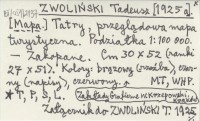 ZWOLIŃSKI Tadeusz [1925 a].
[Mapa.] Tatry przeglądowa mapa
turystyczna. Podziałka 1:100 000.
— Zakopane. Cm 30 x 52 (ramki
27 x 51). Kolory: brązowy (rzeźba), czar-
ny (napisy), czerwony. MT, WHP.
* T, P, S, L (Zakłady Graficzne W. Krzepowski
Kraków)
Załącznik do ZWOLIŃSKI T. 1925